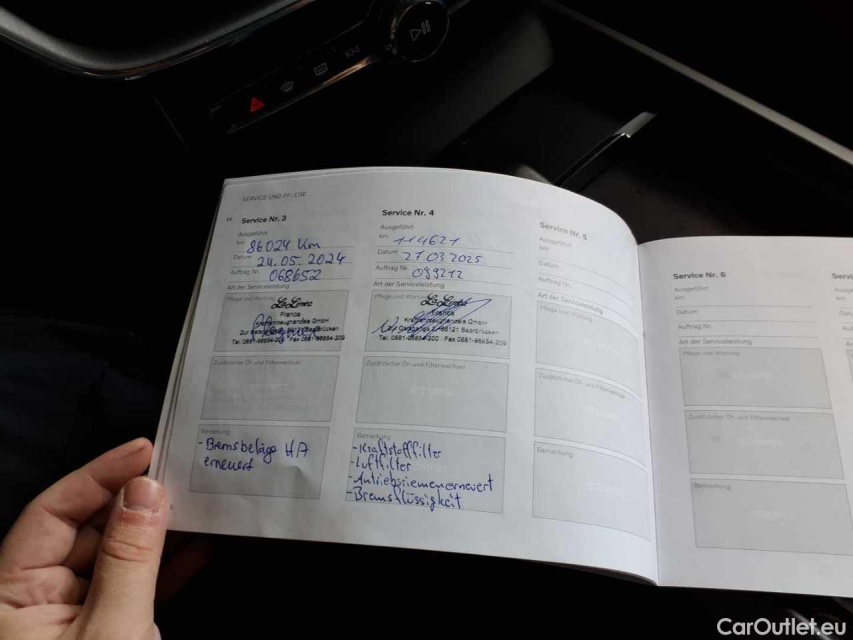 SERVICE UND PFLEGE
Service Nr. 3
Ausgeführt
km 86024 Km
Datum 24.05.2024
Auftrag Nr. 068652
Art der Serviceleistung
Pflege und Wartung
France
Kraftfahrzeughandels GmbH
66121 Saarbrücken
Zusätzlicher Öl- und Filterwechsel
Bemerkung
- Bremsbeläge HA
erneuert
Service Nr. 4
Ausgeführt
km 114621
Datum 27.03.2025
Auftrag Nr. 093212
Art der Serviceleistung
Pflege und Wartung
France
66121 Saarbrücken
Zusätzlicher Öl- und Filterwechsel
Bemerkung
- Kraftstofffilter
- Luftfilter
- Antriebsriemen erneuert
- Bremsflüssigkeit
Service Nr. 5
Ausgeführt
km
Datum
Auftrag Nr.
Art der Serviceleistung
Pflege und Wartung
Zusätzlicher Öl- und Filterwechsel
Bemerkung
Service Nr. 6
Ausgeführt
km
Datum
Auftrag Nr.
Art der Serviceleistung
Pflege und Wartung
Zusätzlicher Öl- und Filterwechsel
Bemerkung
CarOutlet.eu